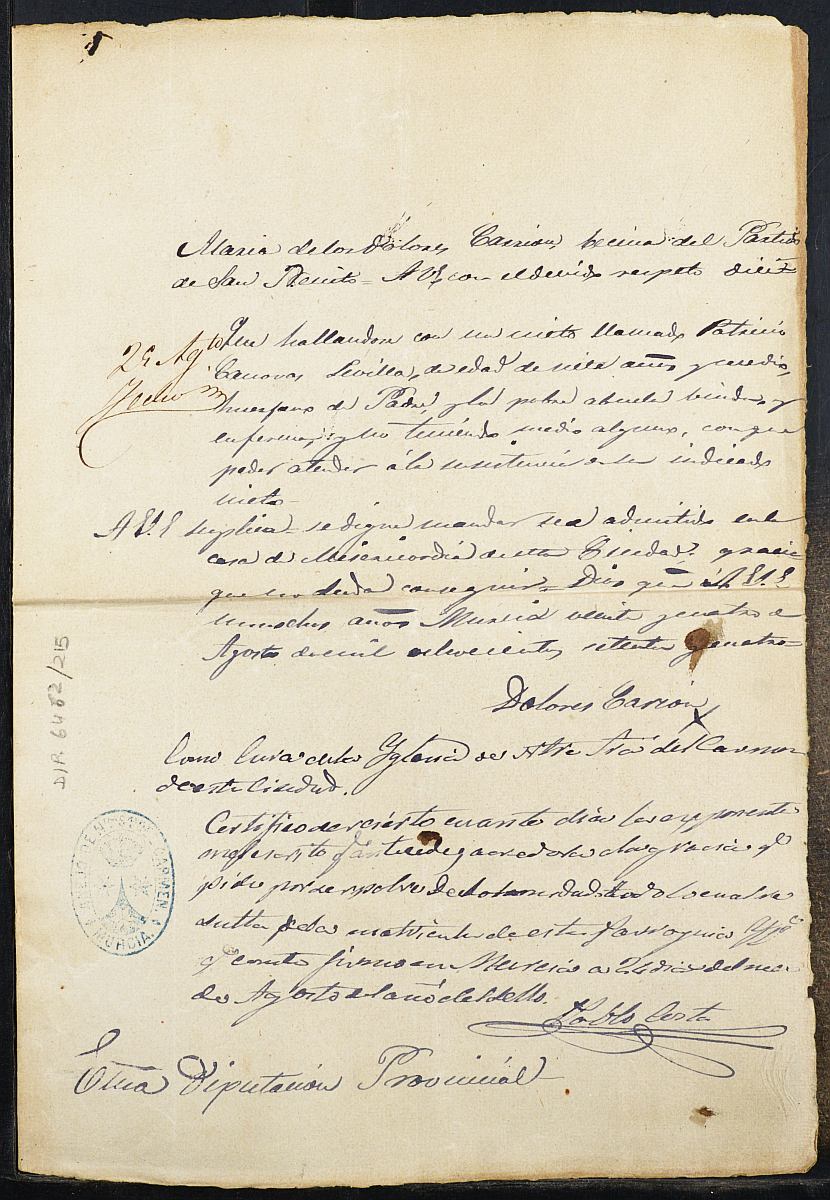 Maria de los Dolores Carrion, becina del Partido
de San Benito = A VE con el devido respeto dice =
Que hallandose con un nieto llamado Patricio
Canovas Sevilla, de edad de años y medio,
huerfano de Padre, y la pobre abuela biuda, y
enferma, y no teniendo medio alguno, con que
poder atender á la susistencia de su indicado
nieto =
A V.E suplica = se digne mandar sea admitido en la
casa de Misericordia de esta Ciudad; gracia
que no duda conseguir = Dios gue á A. V.E.
muchos años Murcia veinte y cuatro de
Agosto de mil ochocientos setenta y cuatro =
Dolores Carrion
25 Agto
Como Cura de la Yglesia de Ntra Sra del Carmen
de esta Ciudad.
Certifico ser cierto cuanto dice la exponente
acredora a la gracia q
pide por ser pobre de
de la matricula de esta Parroquia Y pa
q conste firmo en Murcia a 24 dias del mes
de Agosto del año del Sello
Pablo Costa
Etma Diputación Provincial
DIP. 6482/215
CARMEN
MURCIA